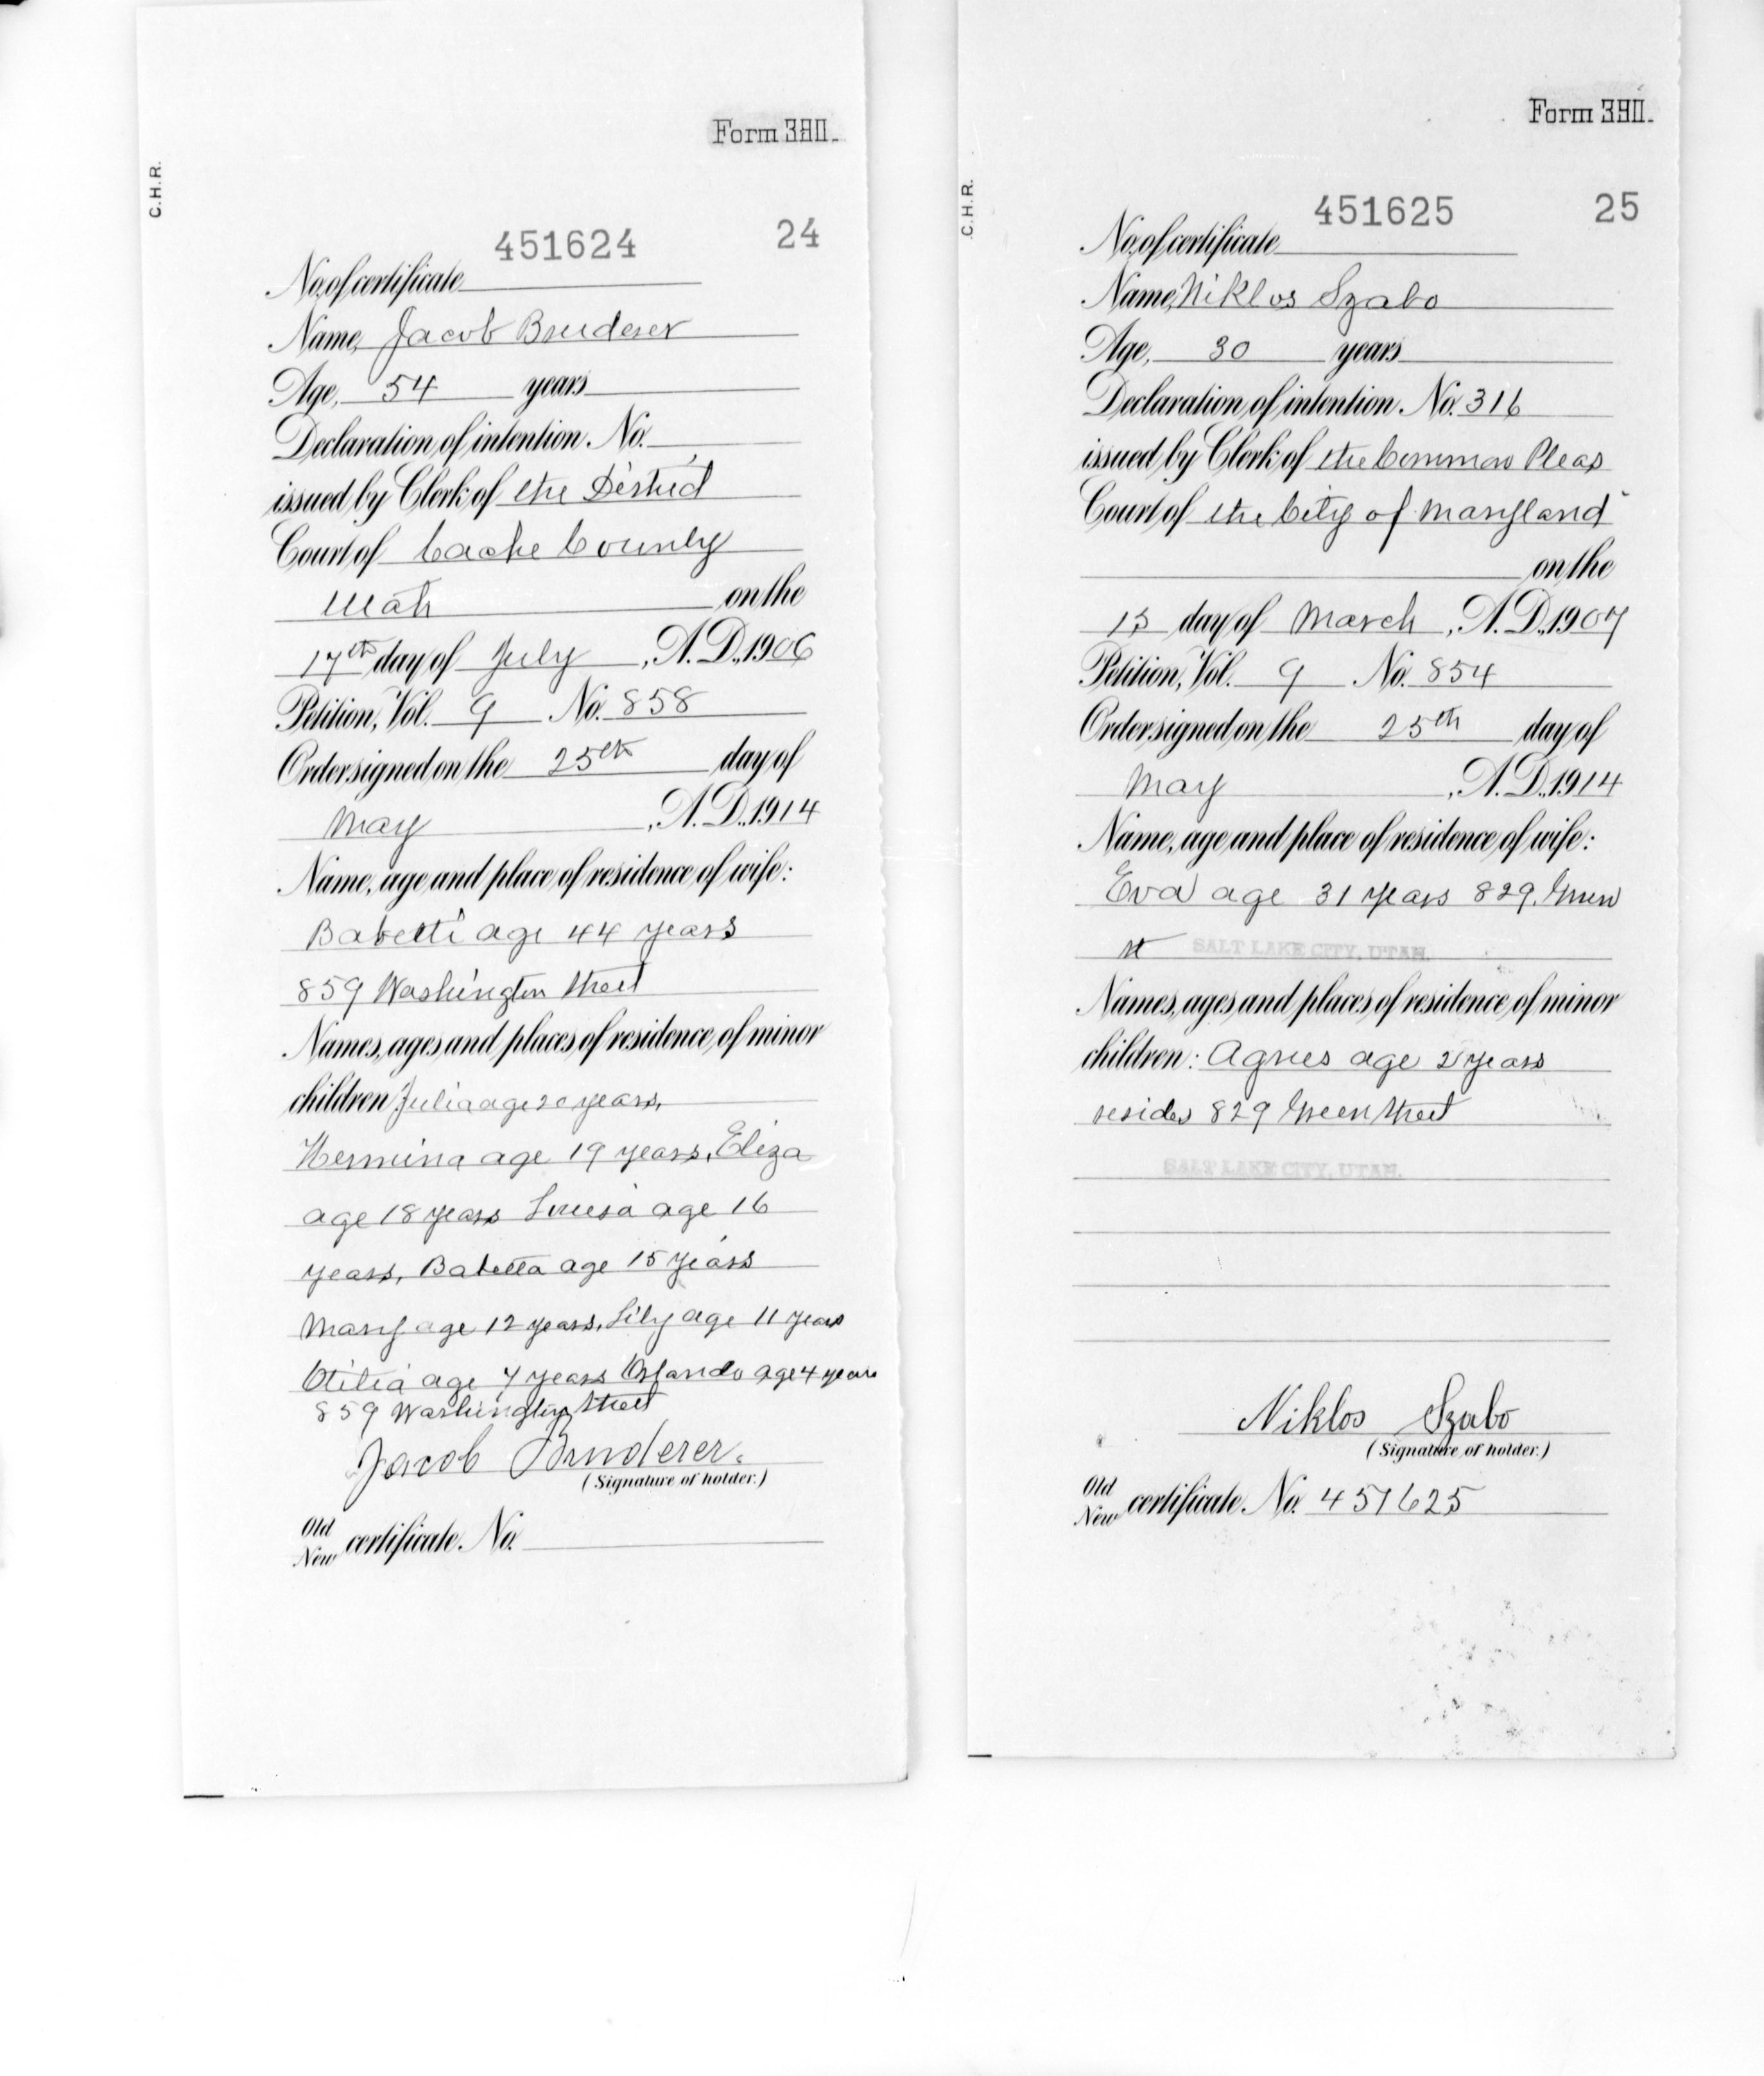 Form 380.
C.H.R.
451624 24
No. of certificate
Name, Jacob Bruderer
Age, 54 years
Declaration of intention. No.
issued by Clerk of the District
Court of Cache County
Utah on the
17th day of July, A.D., 1906
Petition, Vol. 9 No. 858
Order signed on the 25th day of
May, A.D., 1914
Name, age and place of residence of wife:
Babetti age 44 years
859 Washington Street
Names, ages and places of residence of minor
children Julia age 20 years,
Hermina age 19 years, Eliza
age 18 years Louisa age 16
years, Babetta age 15 years
Mary age 12 years, Lily age 11 years
Otilia age 7 years Orlando age 4 years
859 Washington Street
Jacob Bruderer.
(Signature of holder.)
Old
New certificate. No.
Form 390.
C.H.R.
451625 25
No. of certificate
Name, Niklos Szabo
Age, 30 years
Declaration of intention. No. 316
issued by Clerk of the Common Pleas
Court of the City of Maryland
on the
13 day of March, A.D., 1907
Petition, Vol. 9 No. 854
Order signed on the 25th day of
May, A.D., 1914
Name, age and place of residence of wife:
Eva age 31 years 829. Green
st SALT LAKE CITY, UTAH.
Names, ages and places of residence of minor
children: Agnes age 2 years
resides 829 Green Street
SALT LAKE CITY, UTAH.
Niklos Szabo
(Signature of holder.)
Old
New certificate. No. 451625